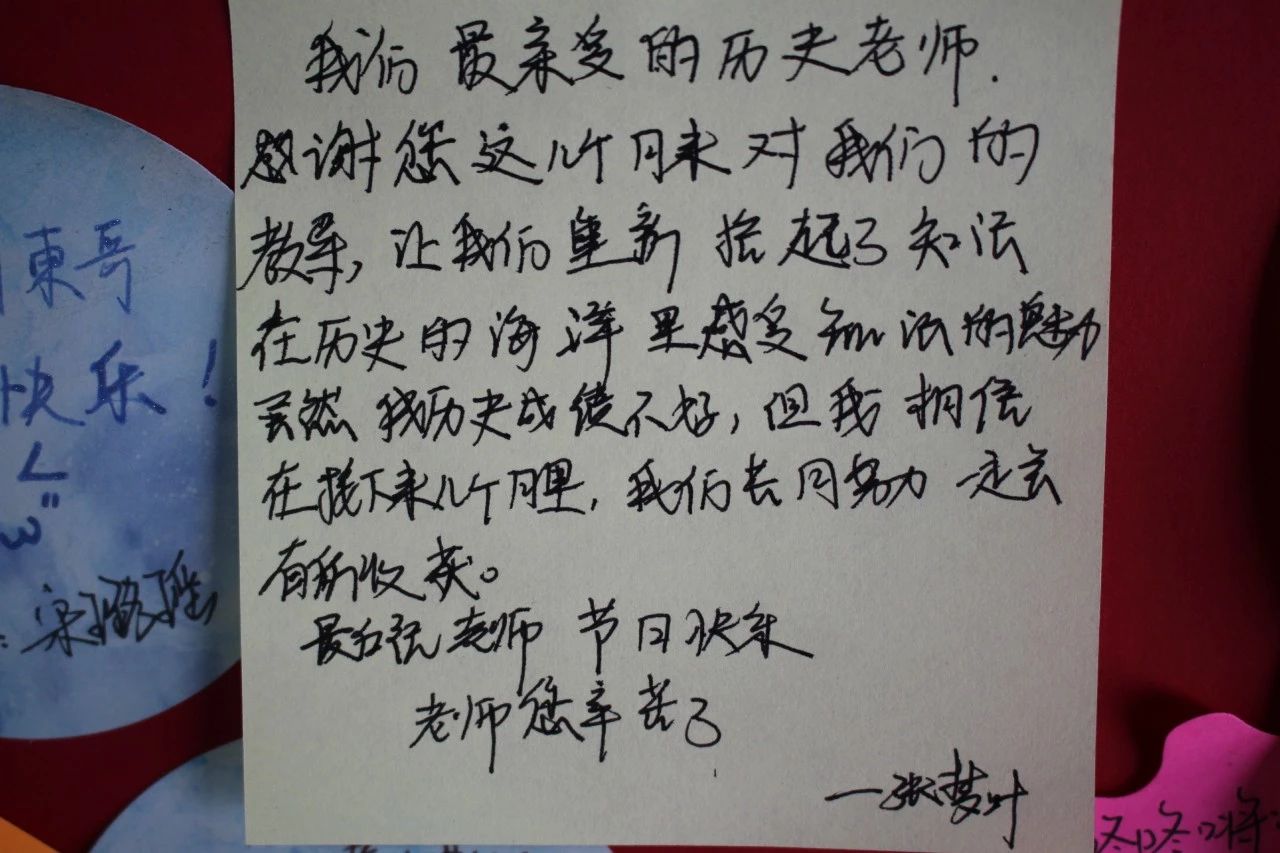 我们最亲爱的历史老师.
感谢您这几个月来对我们的
教导,让我们重新拾起了知识
在历史的海洋里感受知识的魅力
虽然我历史成绩不好,但我相信
在接下来几个月里,我们共同努力一定会
有所收获。
最后祝老师节日快乐
老师您辛苦了
—张梦叶
東哥
快乐!
宋璐瑶
咚咚锵